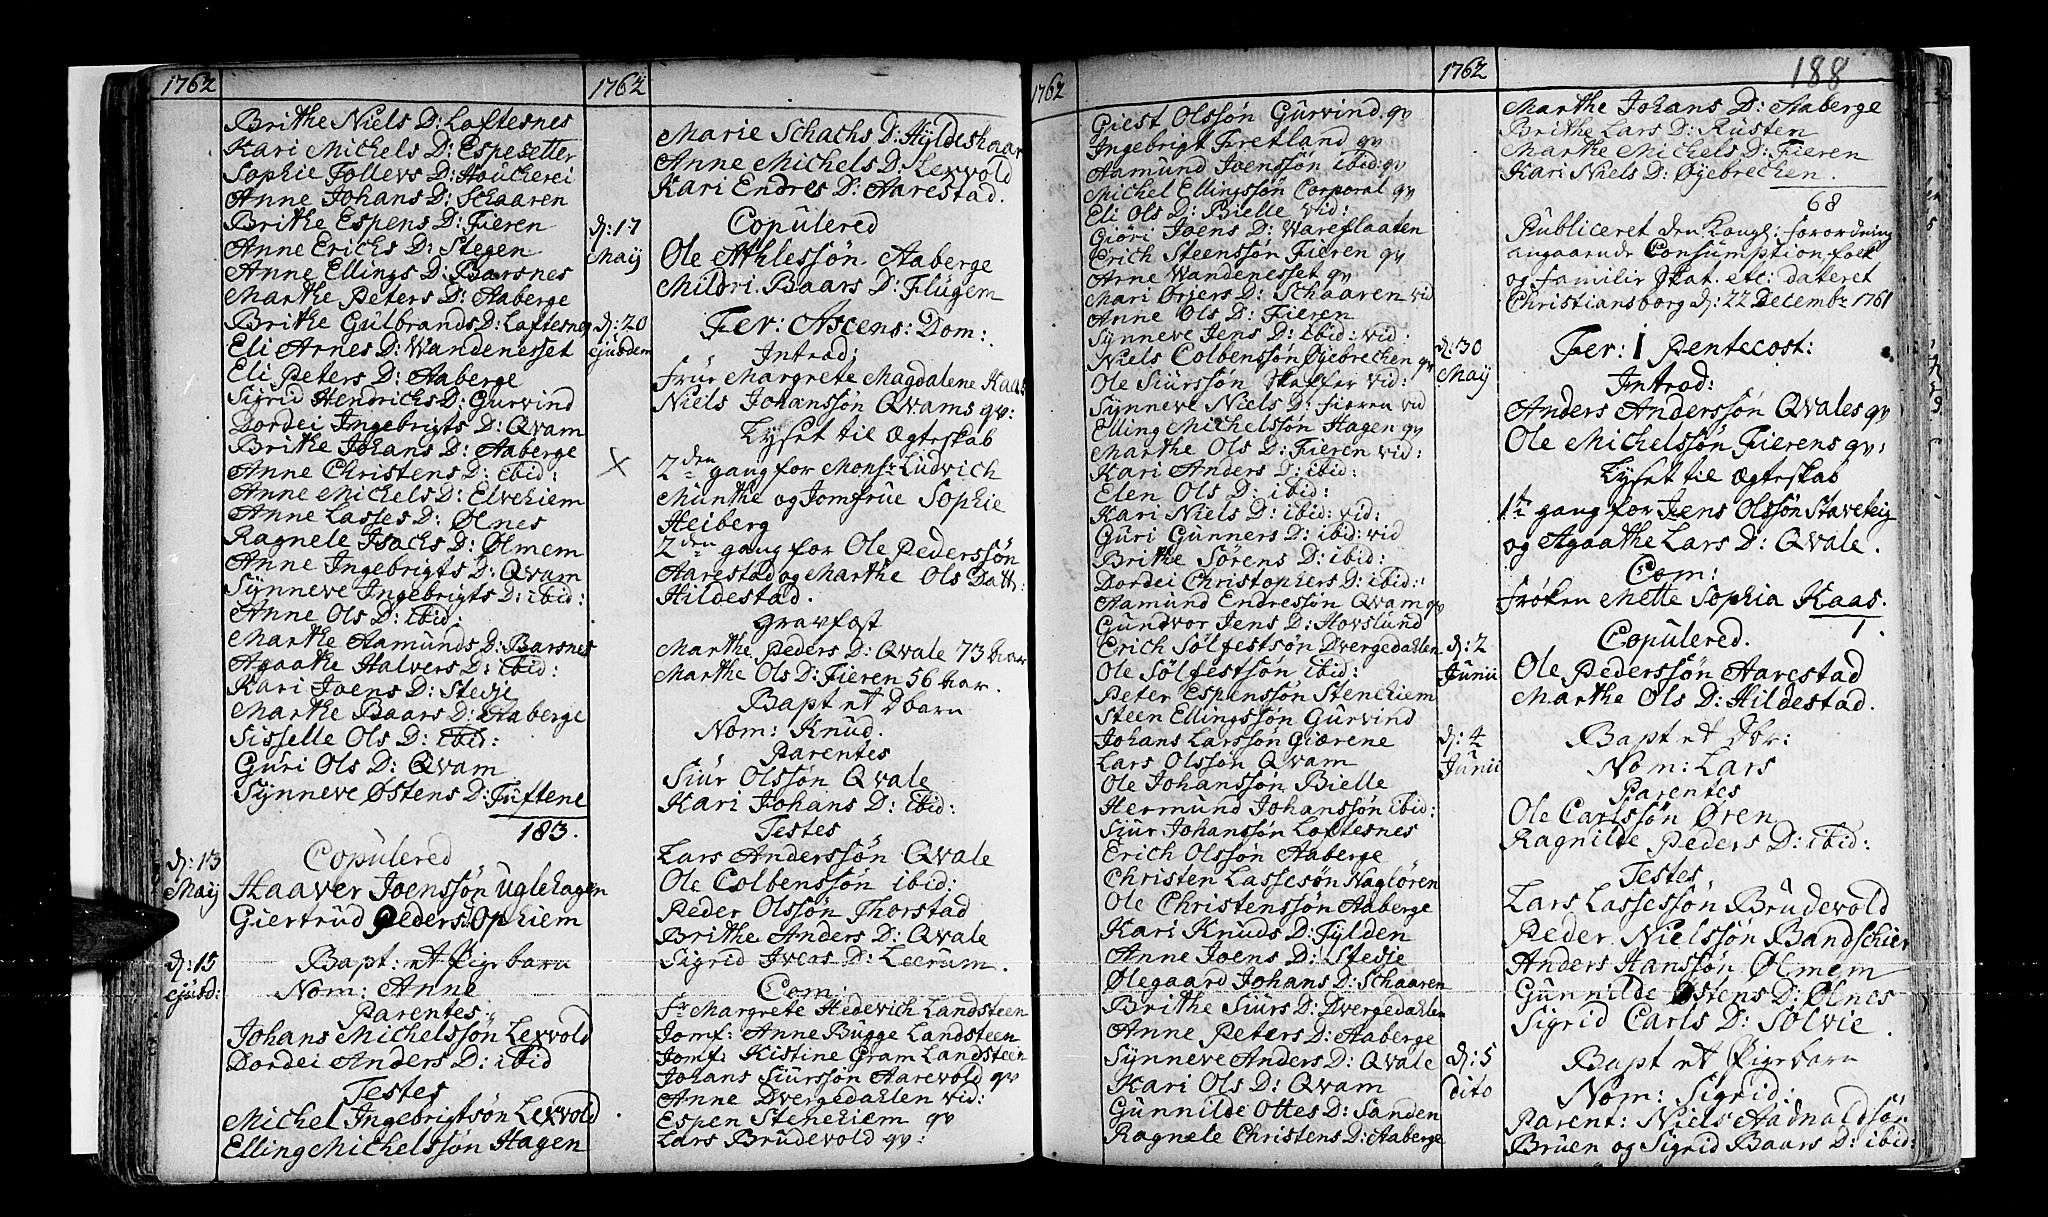 1762
Brithe Niels D: Loftesnes
Kari Michels D: Espesetter
Sophie Tollevs D: Houcherei
Anne Johans D: Schaaren
Brithe Espens D: Fieren
Anne Erichs D: Stegen
Anne Ellings D: Barsnes
Marthe Peters D: Aaberge
Brithe Gulbrands D: Loftesnes
Eli Arnes D: Wandenesset
Eli Peters D: Aaberge
Sigrid Hendrichs D: Gurvind
Dordei Ingebrigts D: Qvam
Brithe Johans D: Aaberge
Anne Christens D: ibid:
Anne Michels D: Elvehiem
Anne Lasses D: Ølnes
Ragnele Isachs D: Ølmem
Anne Ingebrigts D: Qvam
Synneve Ingebrigts D: ibid:
Anne Ols D: ibid:
Marthe Aamunds D: Barsnes
Agaathe Halvers D: ibid:
Kari Joens D: Stedje
Marthe Baars D: Aaberge
Sisselle Ols D: ibid:
Guri Ols D: Qvam
Synneve Østens D: Tuftene
183.
d: 13 May
Copulered
Haaver Joenssøn Uglehagen
Giertrud Peders Ophiem
d: 15 ejusd:
Bapt: et Pige barn
Nom: Anne
Parentes
Johans Michelssøn Lexvold
Dordei Anders D: ibid
Testes
Michel Ingebrigtsøn Lexvold
Elling Michelssøn Hagen
1762
Marie Schachs D: Hyldeskaar
Anne Michels D: Lexvold
Kari Endres D: Aarestad.
d: 17 May
Copulered
Ole Athlessøn Aaberge
Mildri Baars D: Flugem
d: 20 ejusdem
Fer: Ascens: Dom:
Introd:
Frue Margrete Magdalene Kaas
Niels Johanssøn Qvams qv:
Lyset til Ægteskab
X
2den gang for Monsr Ludvich
Munthe og Jomfrue Sophie
Heiberg
2den gang for Ole Pederssøn
Aarestad og Marthe Ols Datt:
Hildestad.
gravfæst
Marthe Peders D: Qvale 73 aar
Marthe Ols D: Fieren 56 aar.
Bapt et D barn
Nom: Knud.
Parentes
Siur Olssøn Qvale
Kari Johans D: ibid:
Testes
Lars Anderssøn Qvale
Ole Colbenssøn ibid:
Peder Olssøn Thorstad
Brithe Anders D: Qvale
Sigrid Ivers D: Leerum.
Com:
Fr Margrete Hedevich Landsteen
Jomf: Anne Bugge Landsteen
Jomf: Kistine Gram Landsteen
Johans Siurssøn Aarevold qv
Anne Dvergedahlen vid:
Espen Stenehiem qv
Lars Brudevold qv:
1762
Giest Olssøn Gurvind qv
Ingebrigt Fretland qv
Aamund Joenssøn ibid: qv
Michel Ellingssøn Corporal qv
Eli Ols D: Bielle vid:
Giøri Joens D: Wareflaaten
Erich Steenssøn Fieren qv
Arne Wandenesset qv
Mari Ørjers D: Schaaren vid
Anne Ols D: Fieren
Synneve Jens D: ibid: vid:
Niels Colbenssøn Øyebrechen qv
Ole Siurssøn Skaffer vid:
Synneve Niels D: Fieren vid
Elling Michelssøn Hagen qv
Marthe Ols D: Fieren vid:
Kari Anders D: ibid:
Elen Ols D: ibid:
Kari Niels D: ibid: vid:
Guri Gunners D: ibid: vid
Brithe Sørens D: ibid:
Dordei Christophers D: ibid:
Aamund Endressøn Qvam qv
Gundvor Jens D: Hovslund
Erich Sølfestsøn Dvergedahlen
Ole Sølfestsøn ibid:
Peter Espenssøn Stenehiem
Steen Ellingssøn Gurvind
Johans Larssøn Giærene
Lars Olssøn Qvam
Ole Johanssøn Bielle
Hermund Johanssøn ibid:
Siur Johanssøn Loftesnes
Erich Olssøn Aaberge
Christen Lassesøn Nagløren
Ole Christenssøn Aaberge
Kari Knuds D: Fylden
Anne Joens D: Stedje
Ølegaard Johans D: Schaaren
Brithe Siurs D: Dvergedahlen
Anne Peters D: Aaberge
Synneve Anders D: Qvale
Kari Ols D: Qvam
Gunnilde Ottes D: Sanden
Ragnele Christens D: Aaberge
1762
188
Marthe Johans D: Aaberge
Brithe Lars D: Rusten
Marthe Michels D: Fieren
Kari Niels D: Øyebrechen.
68
Publiceret den Kongl: forordning
angaaende Consumption folk
og familie skat etc: dateret
Christiansborg d: 22 Decembr 1761
d: 30 May
Fer: 1 Pentecost:
Introd:
Anders Anderssøn Qvales qv
Ole Michelssøn Fierens qv:
Lyset til Ægteskab
1te gang for Jens Olssøn Staveteig
og Agaathe Lars D: Qvale.
Com:
Frøken Mette Sophia Kaas.
1.
d: 2 Junii
Copulered.
Ole Pederssøn Aarestad
Marthe Ols D: Hildestad.
d: 4 Junii
Bapt et Dbr:
Nom: Lars
Parentes
Ole Carlssøn Øren
Ragnilde Peders D: ibid:
Testes
Lars Lassessøn Brudevold
Peder Nielssøn Bandschier
Anders Janssøn Ølmem
Gunnilde Østens D: Ølnes
Sigrid Carls D: Solvie.
d: 5 dito
Bapt et Pige barn
Nom: Sigrid:
Parent: Niels Aadnaldsøn
Bruen og Sigrid Baars D: ibid: